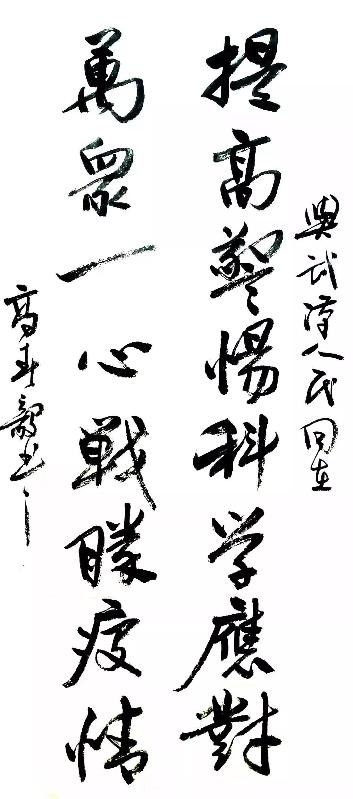 與武漢人民同在
提高警惕科学應對
萬衆一心戰勝疫情
高书